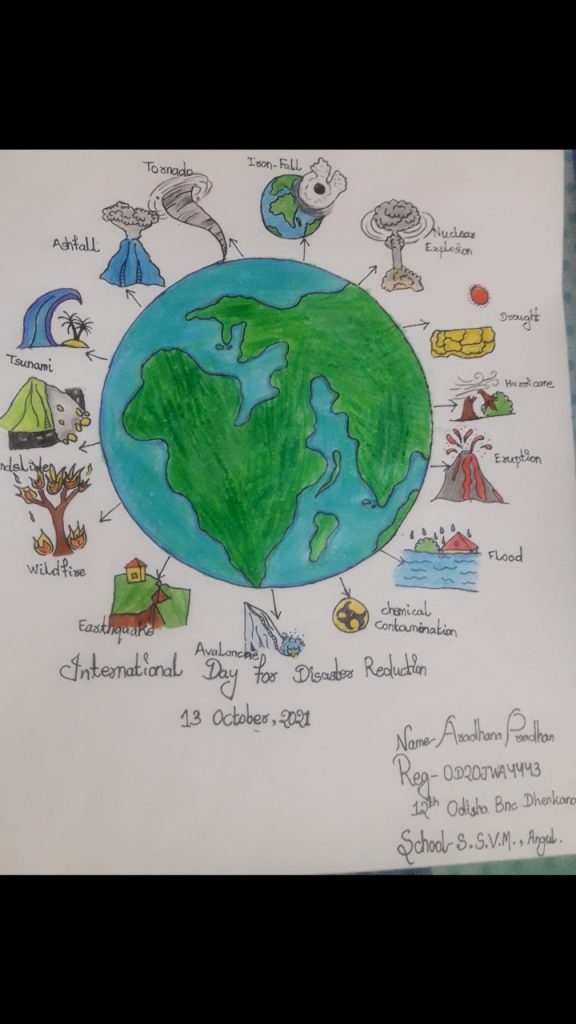 Iron-Fall
Tornado
Nuclear
Explosion
Ashfall
Drought
Tsunami
Hurricane
Eruption
Wildfire
Flood
Earthquake
Chemical
Contamination
Avalanche
International Day for Disaster Reduction
13 October, 2021
Name- Aradhana Pradhan
Reg- OD20JWA4443
12th Odisha Bnc Dhenkana
School- S.S.V.M., Angul.